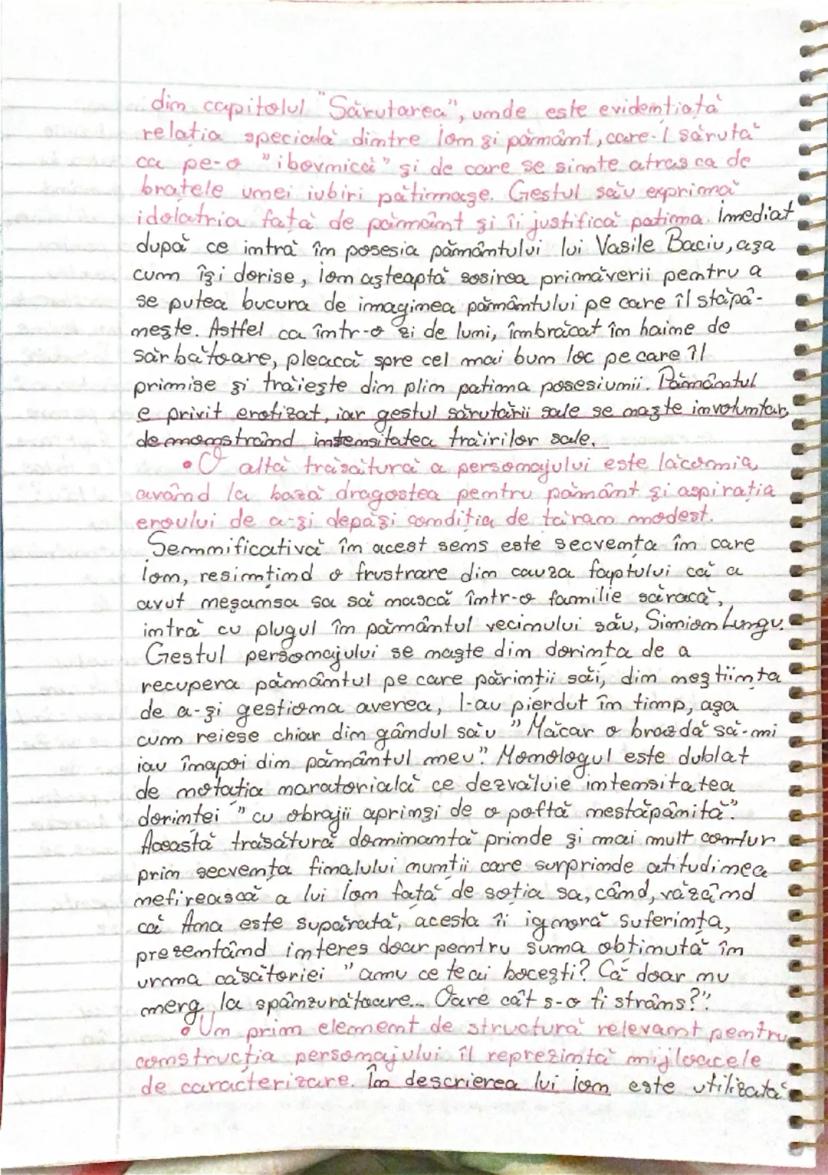 din capitolul "Sărutarea", unde este evidențiată
relația specială dintre Ion și pământ, care-l sărută
ca pe-o "ibovnică" și de care se simte atras ca de
brațele unei iubiri pătimașe. Gestul său exprimă
idolatria față de pământ și îi justifică patima. Imediat
după ce intră în posesia pământului lui Vasile Baciu, așa
cum își dorise, Ion așteaptă sosirea primăverii pentru a
se putea bucura de imaginea pământului pe care îl stăpâ-
nește. Astfel ca într-o zi de luni, îmbrăcat în haine de
sărbătoare, pleacă spre cel mai bun loc pe care îl
primise și trăiește din plin patima posesiunii. Pământul
e privit erotizat, iar gestul sărutării sale se naște involuntar,
demonstrând intensitatea trăirilor sale.
• O altă trăsătură a personajului este lăcomia,
având la bază dragostea pentru pământ și aspirația
eroului de a-și depăși condiția de țăran modest.
Semnificativă în acest sens este secvența în care
Ion, resimțind o frustrare din cauza faptului că a
avut neșansa sa să nască într-o familie săracă,
intră cu plugul în pământul vecinului său, Simion Lungu.
Gestul personajului se naște din dorința de a
recupera pământul pe care părinții săi, din neștiința
de a-și gestiona averea, l-au pierdut în timp, așa
cum reiese chiar din gândul său "Măcar o brazdă să-mi
iau înapoi din pământul meu". Monologul este dublat
de notația naratorială ce dezvăluie intensitatea
dorinței "cu obrajii aprinși de o poftă nestăpânită".
Această trăsătură dominantă prinde și mai mult contur
prin secvența finalului nunții care surprinde atitudinea
nefirească a lui Ion față de soția sa, când, văzând
că Ana este supărată, acesta îi ignoră suferința,
prezentând interes doar pentru suma obținută în
urma căsătoriei "amu ce te-ai bocești? Că doar nu
merg la spânzurătoare... Oare cât s-o fi strâns?".
• Un prim element de structură relevant pentru
construcția personajului îl reprezintă mijloacele
de caracterizare. În descrierea lui Ion este utilizată